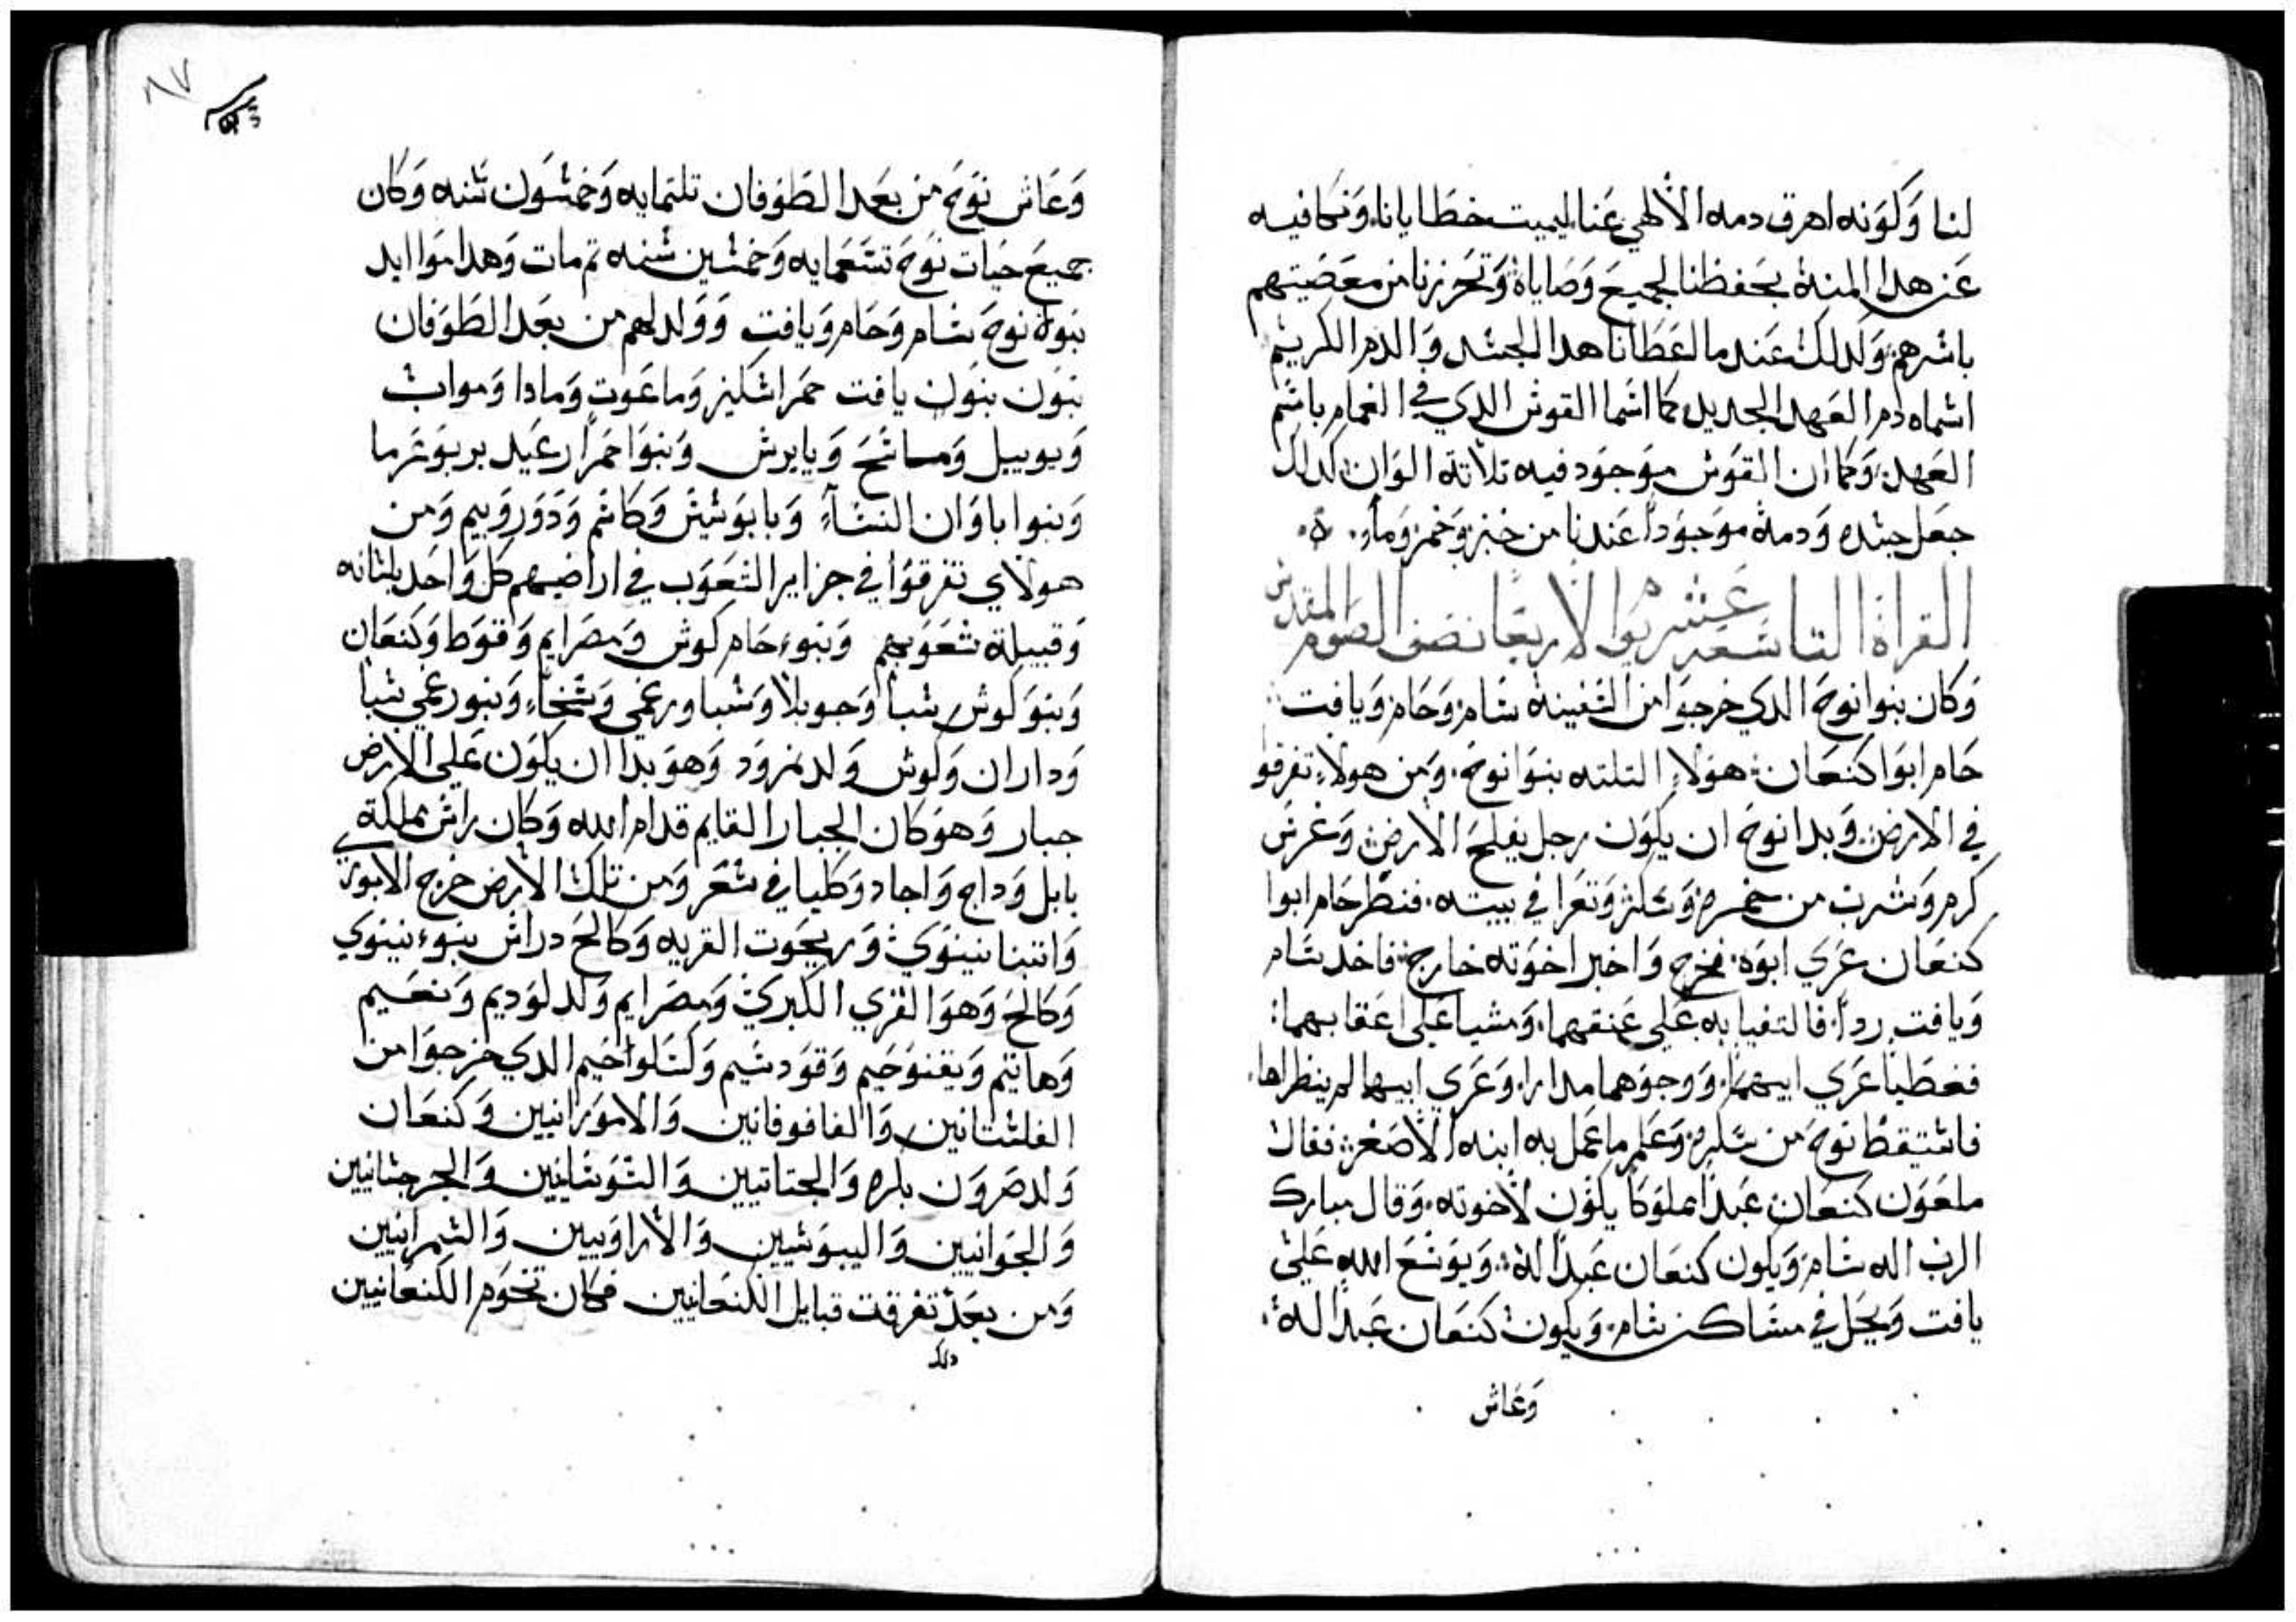 لنا وَكَوَنه اهرق دمه الالهي عَنا ليميت خطَايانا. وَنكافيه
عَن هدا المنة بحَفظنا لجميعَ وَصَاياه وَتحَرزنا من معَصَيتهم
باشرهم. وَلدلك عَند ما اعَطَانا هدا الجسَد وَالدم الكريم
اسماه دم العَهد الجديد كما اسَما القوس الدي في الغمام باسَم
العَهد. وَكما ان القوَس موَجوَد فيه تلاتة الوَان كدلك
جعَل جسَده وَدمة موَجوَداً عَندنا من خبز وَخمر وَماء. ه.
القراة التاسَعَة عَشر يوم الاربعَا نصَف الصَوم المقدس
وَكان بنوا نوحَ الدي خرجوَا من السَفينة سَام وَحَام وَيافت
حَام ابوَا كنعَان. هوَلاء التلته بنوَا نوحَ. وَمن هولاء تفرقو
في الارض. وَبدا نوحَ ان يكوَن رجل يفلحَ الارض وَغرسَ
كرم وَشرب من خمره وَسَكر وَتعَرا في بيته. فنظَر حَام ابوا
كنعَان عَري ابوَه. فخرج وَاخبر اخوَته خارج. فاخد سَام
وَيافت ردا. فالتفيا به عَلى عَنقهما. وَمشيا عَلى اعَقابهما:
فغطَيا عَري ابيهما. وَوجوَهما مدارا. وَعَري ابيهما لم ينظراها.
فاسَتيقظَ نوحَ من سَكره وَعَلم ما عَمل به ابنه الاصَغر. فقال
ملعَوَن كنعَان عَبداً مملوَكا يكوَن لاخوته. وَقال مبارك
الرب اله سَام وَيكون كنعَان عَبداً لهُ. وَيوَسَعَ الله عَلي
يافت وَيحَل في مسَاكن سَام. وَيكون كنعَان عَبداً له.
وَعَاش
وَعَاش نوَحَ من بعَد الطَوَفان تلتمايه وَخمسَوَن سَنه وَكان
جميعَ حَيات نوَحَ تسَعَمايه وَخمسَين سَنه تم مات وَهدا موَاليد
بنوَة نوحَ سَام وَحَام وَيافت وَوَلد لهم من بعَد الطَوَفان
بنوَن بنوَن يافت حَمر اسَكنز وَماعَوت وَمادا وَمواب
وَيوبيل وَماسَحَ وَيابرس وَبنوَا حَمراً رعَيد بربوَعَرما
وَبنوا ياوَان النسَاء وَبابوَسَيس وَكاسَم وَدَوَروَبيم وَمن
هولاي تفرقوَا في جزاير الشَعَوَب في اراضَيهم كل وَاحَد بلسَانه
وَقبيلة شعَوَبهم وَبنوء حَام كوش وَمصَرايم وَقوَط وَكنعَان
وَبنوَ كوش شبا وَجويلا وَسَبا ورعَمي وَسَحَاء وَبنو رعَمي شبا
وَداران وَكوش وَلد نمروَد وَهوَ بدا ان يكوَن عَلى الارض
جبار وَهوَ كان الجبار القايم قدام الله وَكان راسَ مملكة
بابل وَداج وَاجاد وَكلَيا في سَعَر وَمن تلك الارض خرج الابوري
وَانتنا نينوَي وَريحَوت القريه وَكالحَ دراس بنوء نينوَي
وَكالحَ وَهوَ القري الكبري وَمصَرايم وَلد لوَديم وَنعَيم
وَهاتيم وَيفنوَحَيم وَقوَدسَيم وَلسَلواحَيم الدي خرجوَا من
الفلسَتانين وَالفافوفانين وَالاموَرانيين وَكنعَان
وَلد صَروَن بكره وَالجتاتيين وَالسَوَسَانيين وَالجرجسَانيين
وَالجَوانيين وَاليبوَسَيين وَالاراوَيين وَالسَمرانيين
وَمن بعَد تفرقت قبايل الكنعَانيين فكان تخوَم الكنعَانيين
دلك